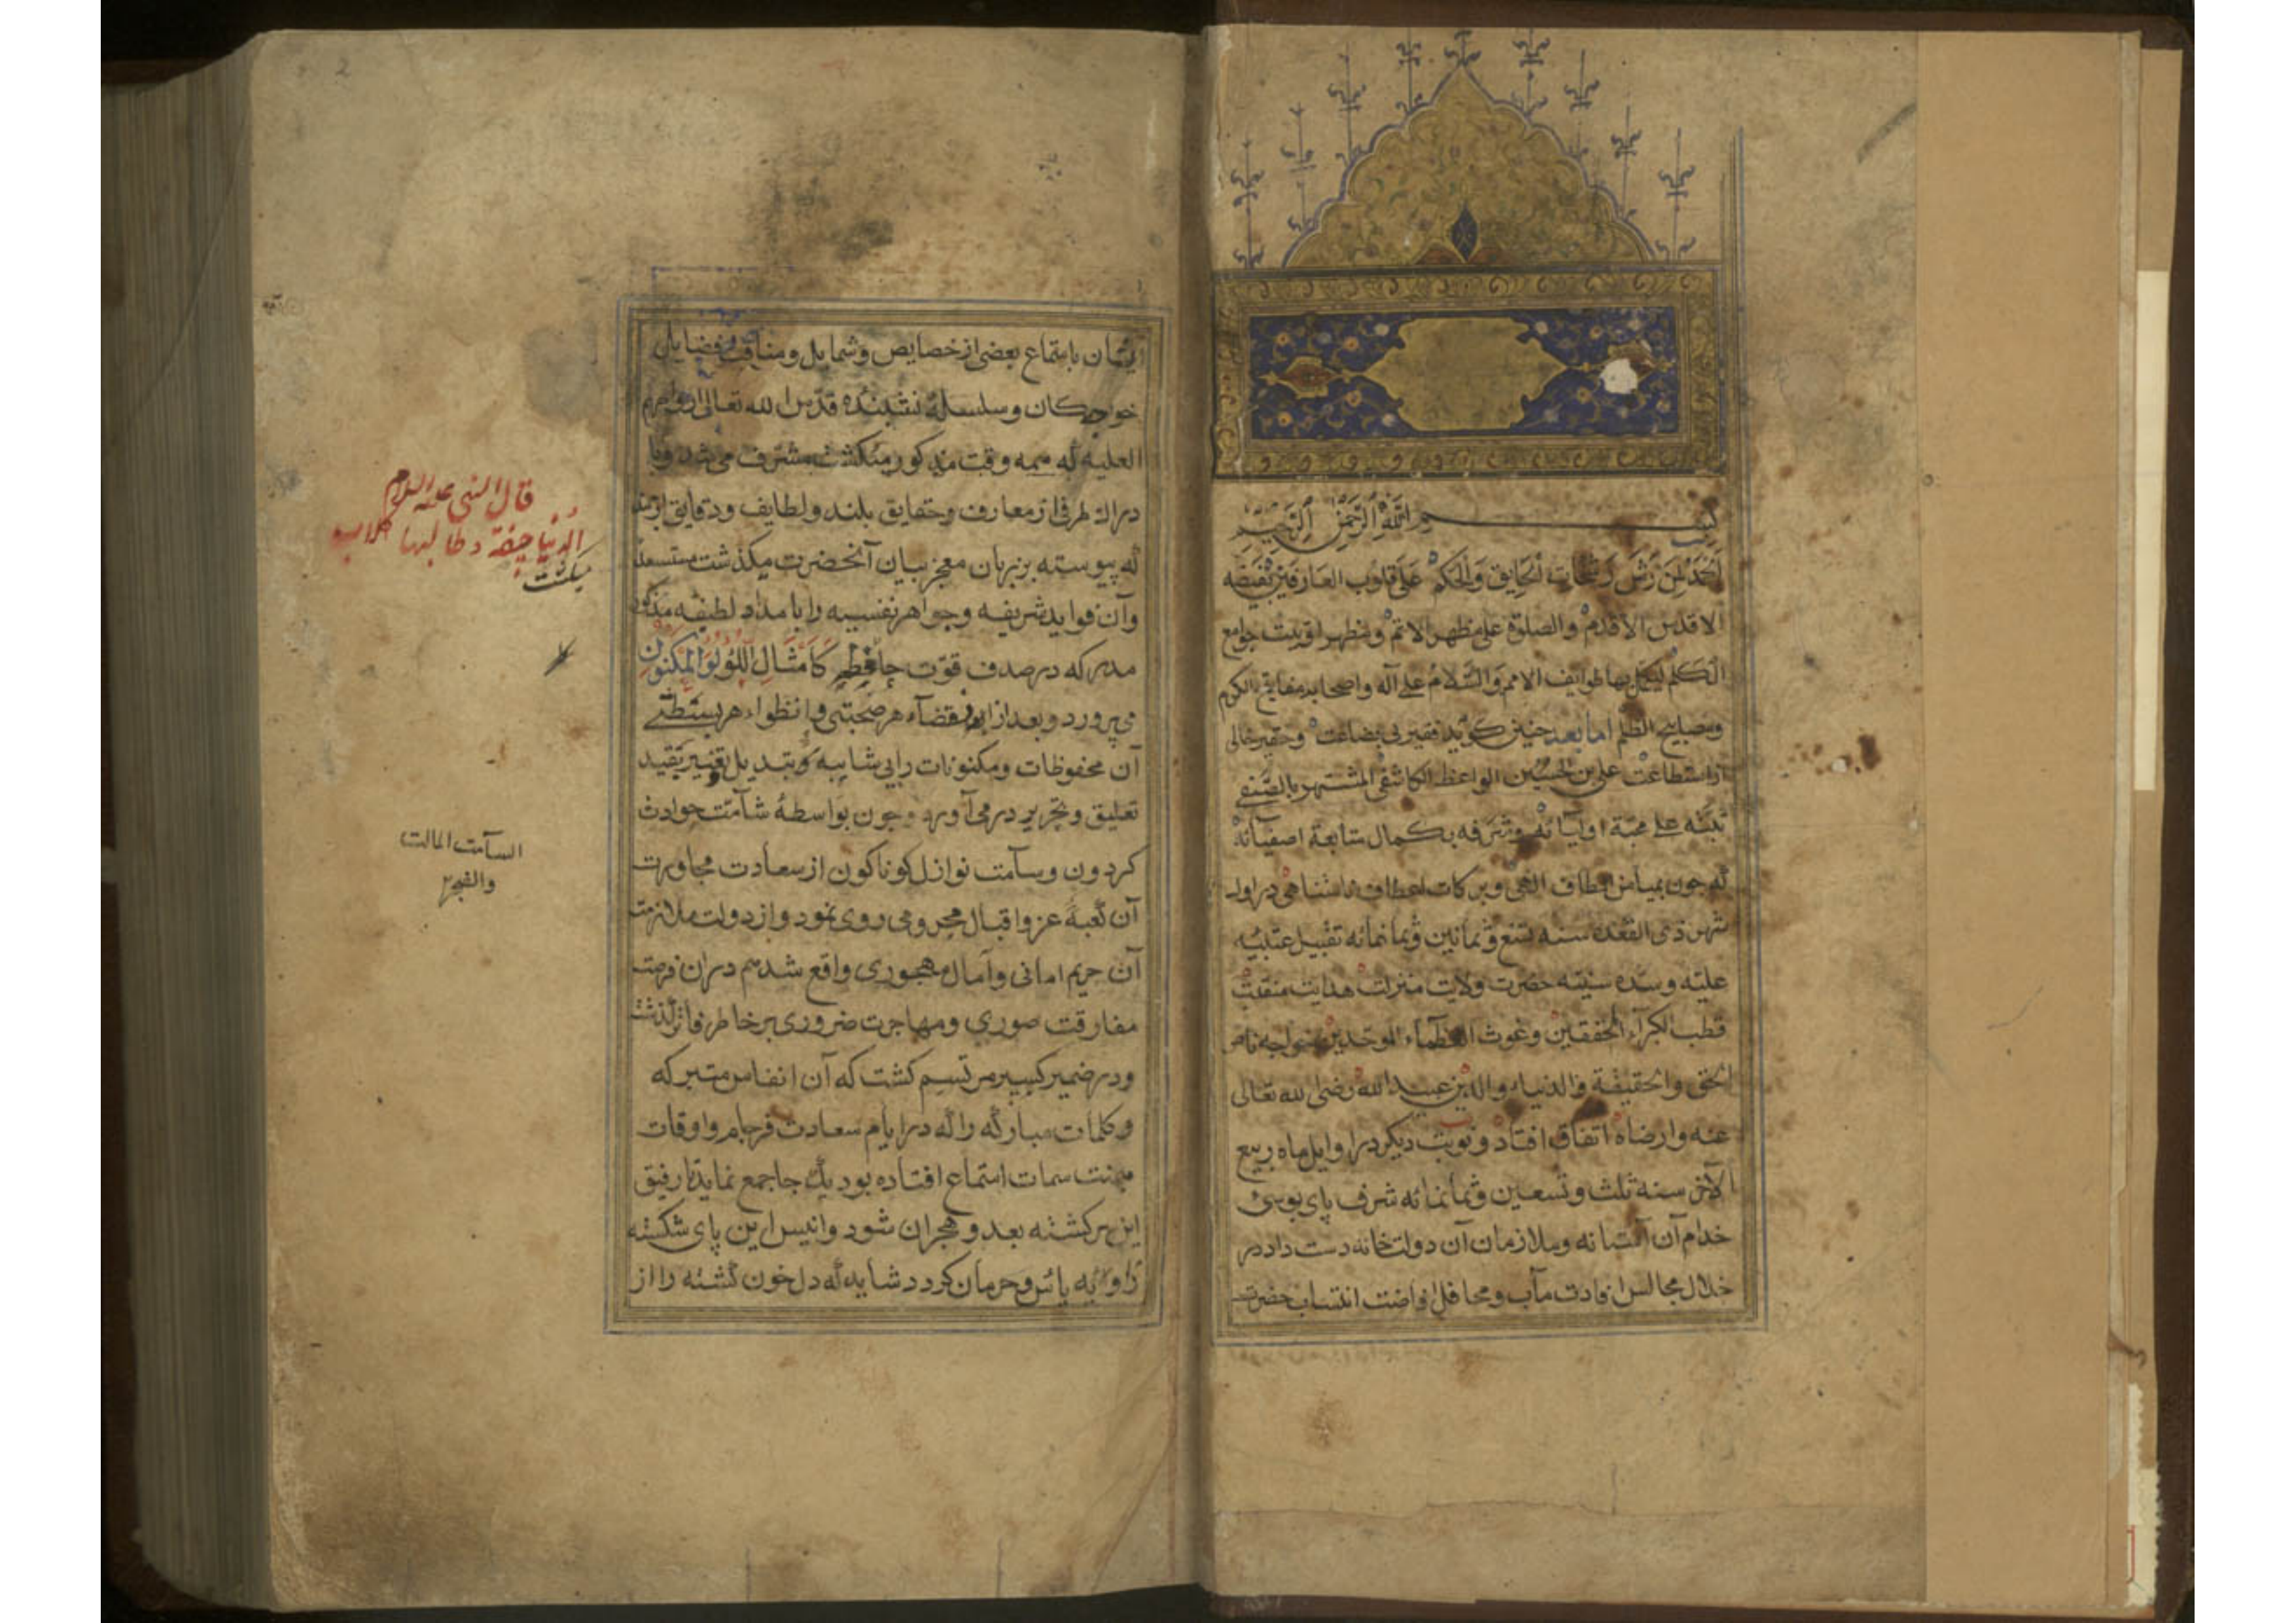 بسم الله الرحمن الرحيم
الحمد لمن رش رشحات الحقايق والحكم على قلوب العارفين بفيضه
الاقدس الاقدم والصلوة على مظهر الاتم ومظهر اوتيت جوامع
الكلم ليكمل بها طوايف الامم والسلام على آله واصحابه مفاتيح الكرم
ومصابيح الظلم اما بعد چنين كويد فقير بى بضاعت وحقير خالى
از استطاعت على بن الحسين الواعظ الكاشفى المشتهر بالصفى
ثبته على محبة اوليائه وشرفه بكمال متابعة اصفيائه
كه چون بميامن الطاف الهى وبركات اعطاف نامتناهى در اواخر
شهر ذى القعده سنه تسع وثمانين وثمانمائه تقبيل عتبه
عليه وسده سنيه حضرت ولايت منزلت هدايت منقبت
قطب الكبراء المحققين وغوث العظماء الموحدين خواجه ناصر
الحق والحقيقة والدنيا والدين عبيد الله رضى الله تعالى
عنه وارضاه اتفاق افتاد ونوبت ديكر در اوايل ماه ربيع
الآخر سنه ثلث وتسعين وثمانمائه شرف پاى بوسئ
خدام آن آستانه وملازمان آن دولتخانه دست داد در
خلال مجالس افادت مآب ومحافل افاضت انتساب حضرت
ايشان باستماع بعضى از خصايص وشمايل ومناقب وفضايل
خواجكان وسلسلهٔ نقشبنديه قدس الله تعالى ارواحهم
العليه كه همه وقت مذكور ميكشت مشرف مى شد وبا
دراك طرفى از معارف وحقايق بلند ولطايف ودقايق ارجمند
كه پيوسته بر زبان معجز بيان آنحضرت ميكذشت مستسعد
وآن فوايد شريفه وجواهر نفيسه را بامداد لطيفه مذكور
مدركه در صدف قوت حافظه كأمثال اللؤلؤ المكنون
مى پرورد وبعد از انقضاء هر صحبتى وانطواء هر بسطتى
آن محفوظات ومكنونات را بى شايبه وتبديل وتغيير بقيد
تعليق وتحرير در مى آورد وچون بواسطهٔ شآمت حوادث
كردون وسآمت نوازل كوناكون از سعادت مجاورت
آن كعبهٔ عز واقبال محرومى روى نمود واز دولت ملازمت
آن حريم امانى وآمال مهجورى واقع شد هم در ان فرصت
مفارقت صورى ومهاجرت ضرورى بر خاطر فاتر كذشت
ودر ضمير كسير مرتسم كشت كه آن انفاس متبركه
وكلمات مباركه را كه در ايام سعادت فرجام واوقات
ميمنت سمات استماع افتاده بود يك جا جمع نمايد تا رفيق
اين سركشته بعد وهجران شود وانيس اين پاى شكسته
زاويه يائس وحرمان كردد شايد كه دل خون كشته را از
قال النبى عليه السلام
الدنيا جيفة وطالبها كلاب
ميكذشت
السآمت المالت
والضجر
2